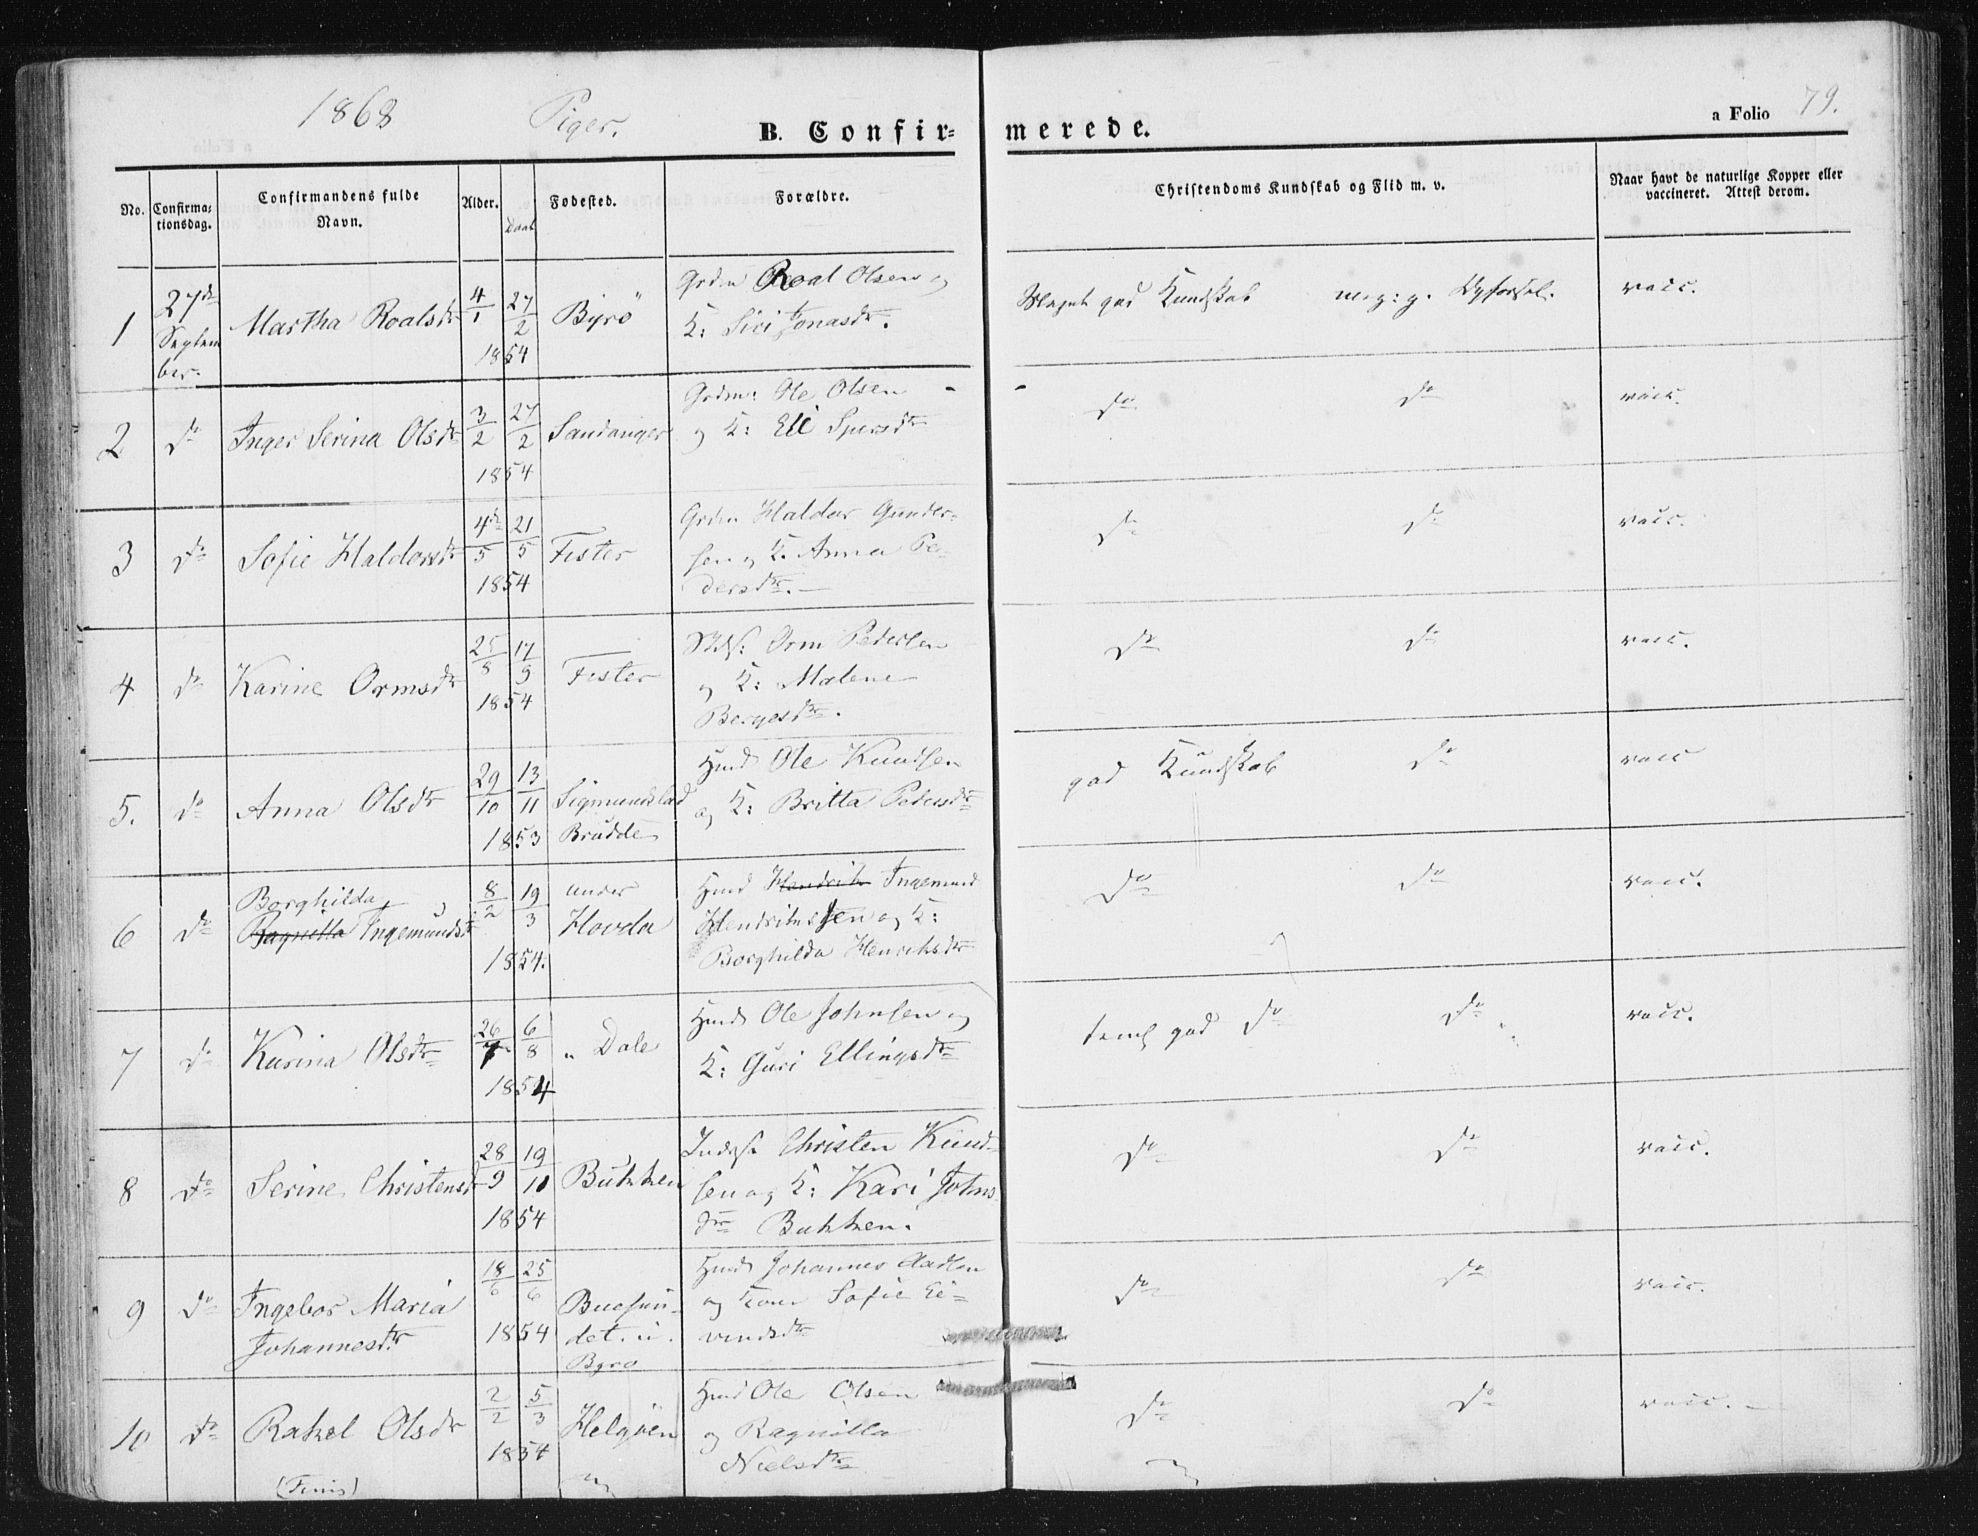 1868 Piger. B. Confir= merede. a Folio 79.
No. Confirma= tionsdag. Confirmandens fulde Navn. Alder. Daab Fødested. Forældre. Christendoms Kundskab og Flid m. v. Naar havt de naturlige Kopper eller vaccineret. Attest derom.
1 27de Septem ber. Martha Roalsdtr 4/1 27/2 1854 Byrø Grdm Roal Olsen og
K: Siri Jonasdtr. Meget god Kundskab meg: g. Opførsel. vacc.
2 do Inger Serina Olsdtr 3/2 27/2 1854 Sandanger Grdm: Ole Olsen
og K: Eli Spersdtr do do vacc.
3 do Sofie Haldorsdtr 4de/5 21/5 1854 Fister Grdm Haldor Gunder=
sen og K. Anna Pe=
dersdtr. do do vacc.
4 do Karine Ormsdtr 25/8 17/9 1854 Fister Orm Pedersen
og K: Malene
Bergesdtr. do do vacc.
5. do Anna Olsdtr 29/10 13/11 1853 Sigmundstad
Brødde Hmd Ole Knudsen
og K: Britta Pedersdtr god Kundskab do vacc
6 do Borghilda
Ragnilla Ingemundsdtr 8/2 19/3 1854. under
Hovda Hmd Hendrik Ingemund
Hendriksen og K:
Borghilda Henriksdtr do do vacc.
7 do Karina Olsdtr 26/7 6/8 1854 " Dale Hmd Ole Johnsen og
K: Guri Ellingsdtr temel god do do vacc.
8 do Serine Christensdtr 28/9 19/10 1854 Bukken Inders Christen Knud=
sen og K: Kari Johns
dtr Bukken. do do vacc.
9 do Ingebor Maria
Johannesdtr 18/6 25/6 1854 Buesun=
det. u.
Byrø Hmd Johannes Aadlen
og Kone Sofie Ei=
vindsdtr do do vacc.
10 do Rakel Olsdtr 2/2 5/3 1854 Helgøen Hmd Ole Olsen
og Ragnilla
Nielsdtr do do vacc.
(Finis)